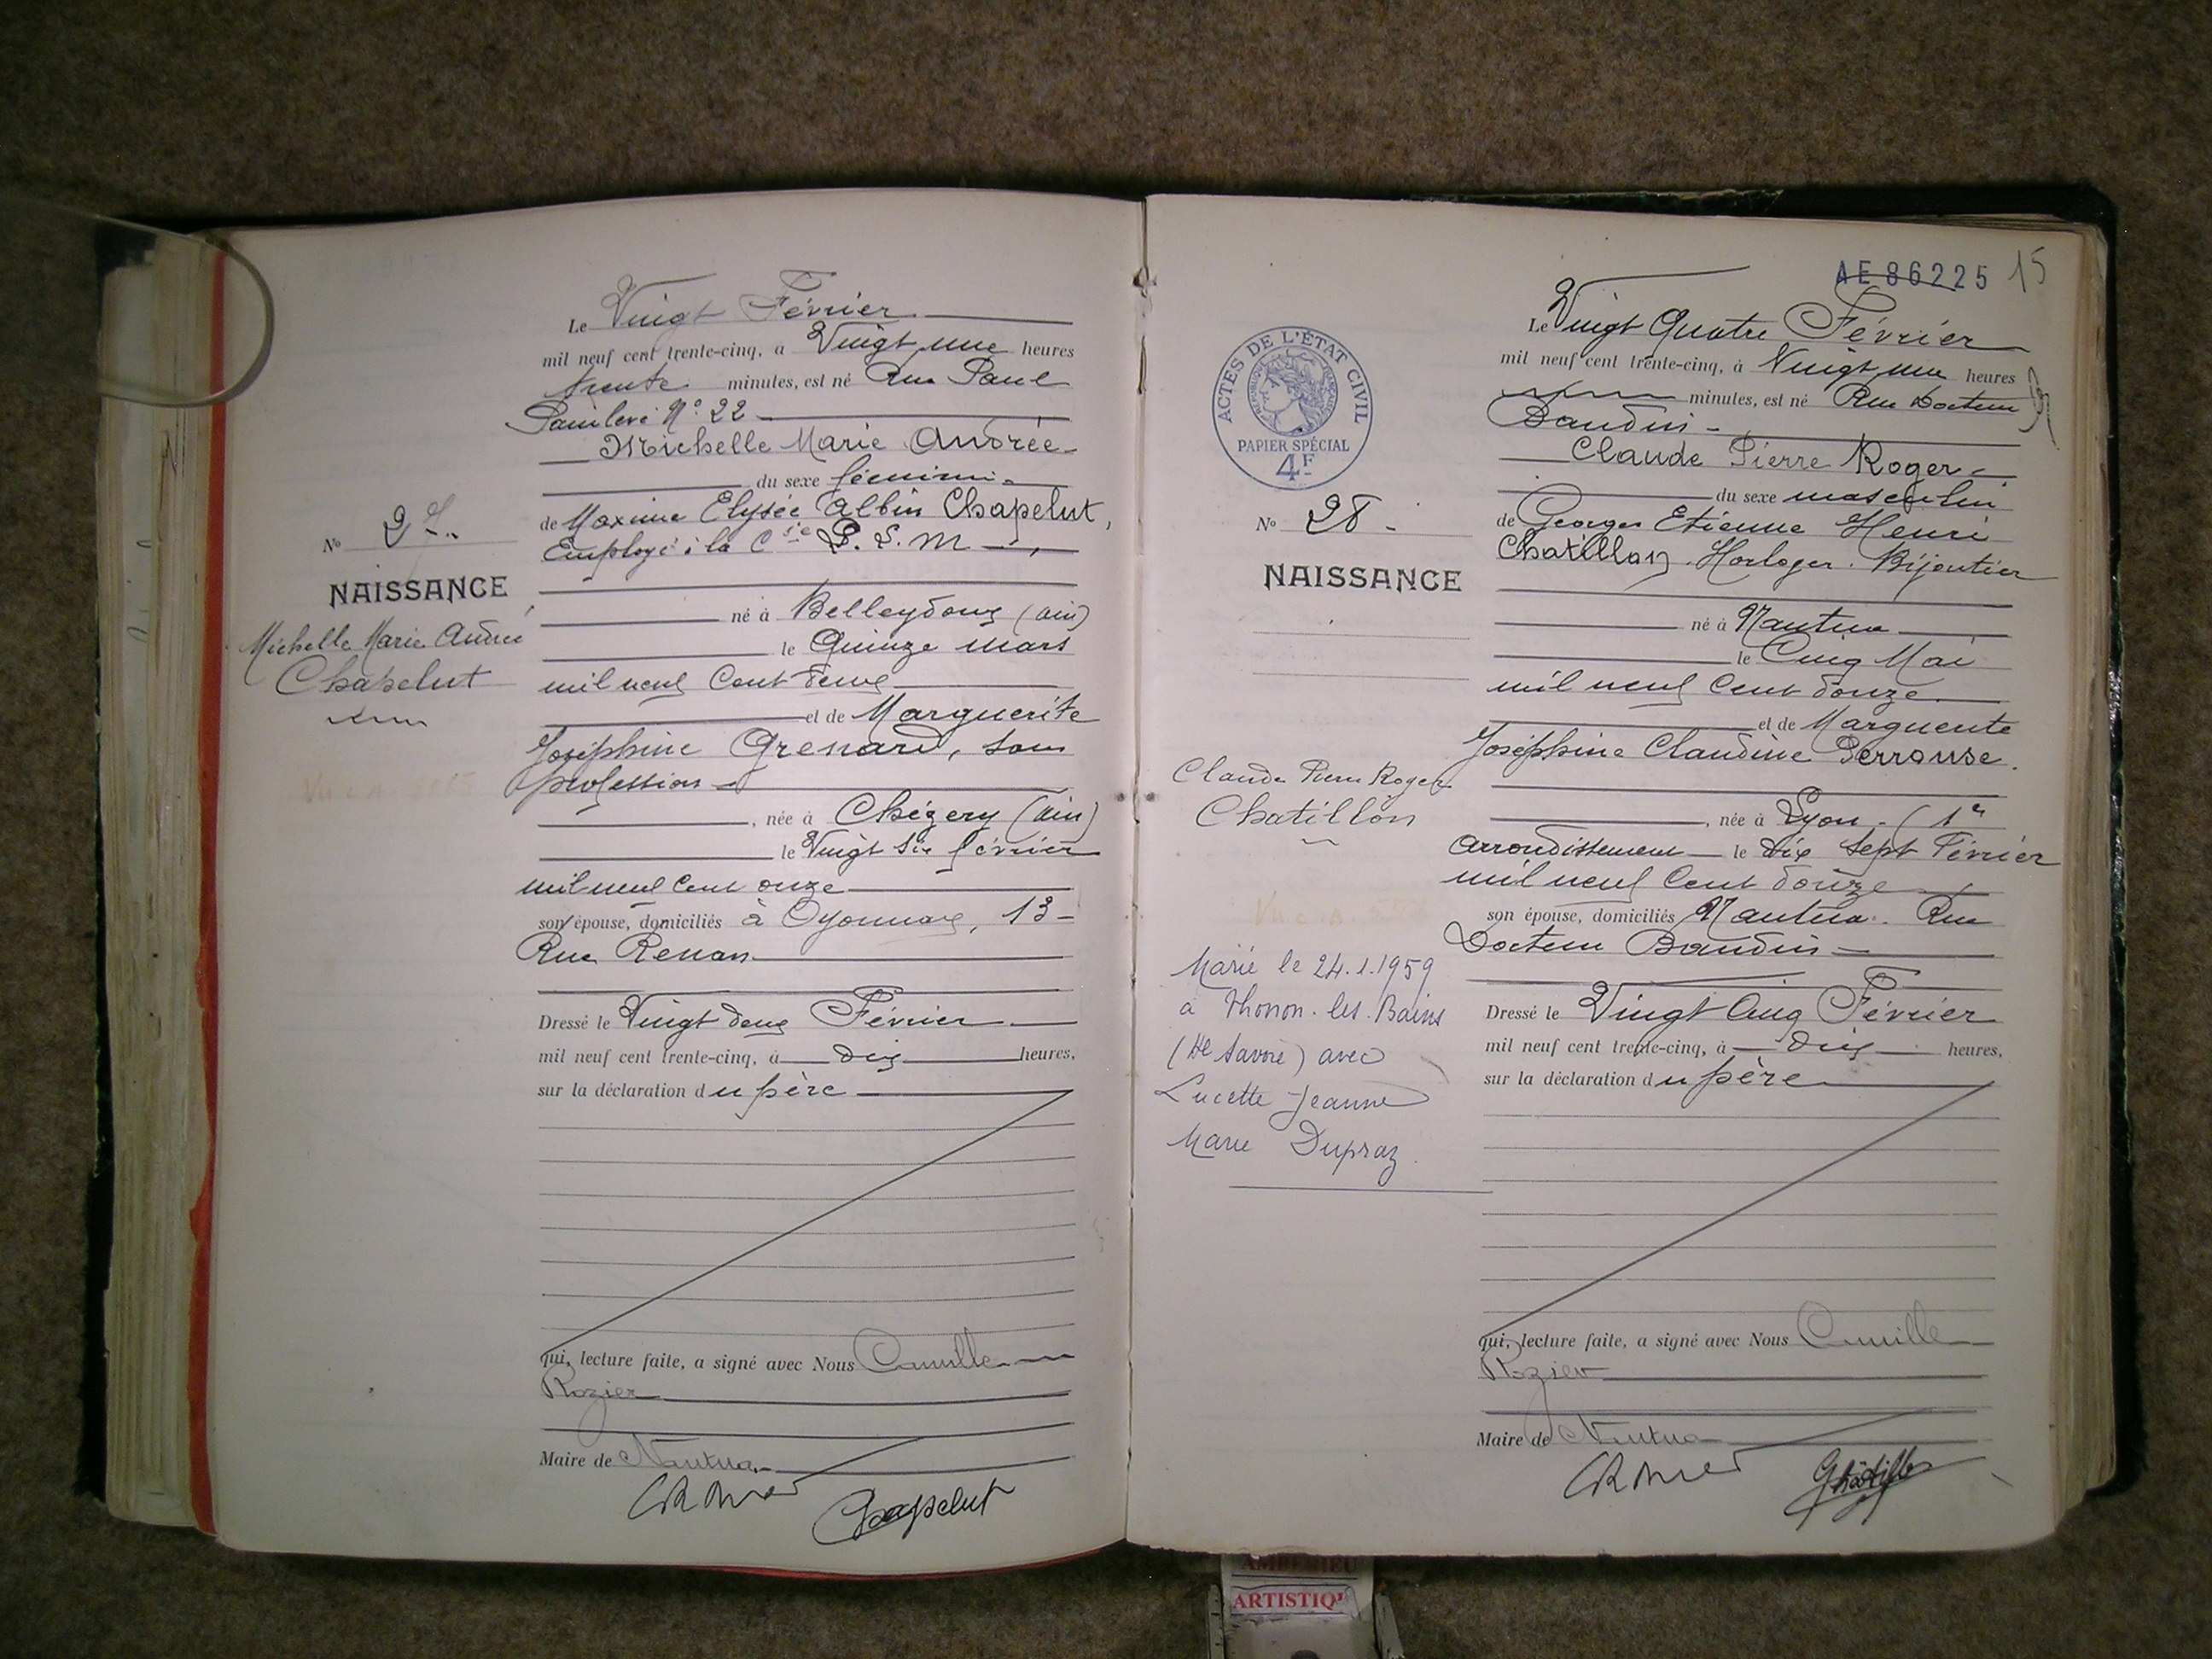 Le Vingt Février
mil neuf cent trente-cinq, à Vingt une heures
trente minutes, est né Rue Paul
Painlevé N° 22
Michelle Marie Andrée
du sexe féminin
de Maxime Elysée Albin Chapelut,
Employé à la Cie P. L. M.,
né à Belleydoux (Ain)
le Quinze mars
mil neuf Cent
et de Marguerite
Joséphine Grenard, sans
profession
, née à Chézery (Ain)
le Vingt Six février
mil neuf Cent onze
son épouse, domiciliés à Oyonnax, 13
Rue Renan
Dressé le Vingt deux Février
mil neuf cent trente-cinq, à dix heures,
sur la déclaration du père
qui, lecture faite, a signé avec Nous Camille
Rozier
Maire de Nantua
Chapelut
N° 27
NAISSANCE
Michelle Marie Andrée
Chapelut
AE 86225 15
Le Vingt Quatre Février
mil neuf cent trente-cinq, à Vingt une heures
minutes, est né Rue Docteur
Baudin
Claude Pierre Roger
du sexe masculin
de Georges Etienne Henri
Chatillon. Horloger. Bijoutier
né à Nantua
le Cinq Mai
mil neuf Cent douze
et de Marguerite
Joséphine Claudine Perrouse.
, née à Lyon (1er
Arrondissement le Dix Sept Février
mil neuf Cent douze
son épouse, domiciliés Nantua. Rue
Docteur Baudin
Dressé le Vingt Cinq Février
mil neuf cent trente-cinq, à dix heures,
sur la déclaration du père
qui, lecture faite, a signé avec Nous Camille
Rozier
Maire de Nantua
ACTES DE L'ÉTAT CIVIL
RÉPUBLIQUE FRANÇAISE
PAPIER SPÉCIAL
4F
N° 28
NAISSANCE
Claude Pierre Roger
Chatillon
Marié le 24.1.1959
à Thonon-les-Bains
(Hte Savoie) avec
Lucette Jeanne
Marie Dupraz
ARTISTIQ